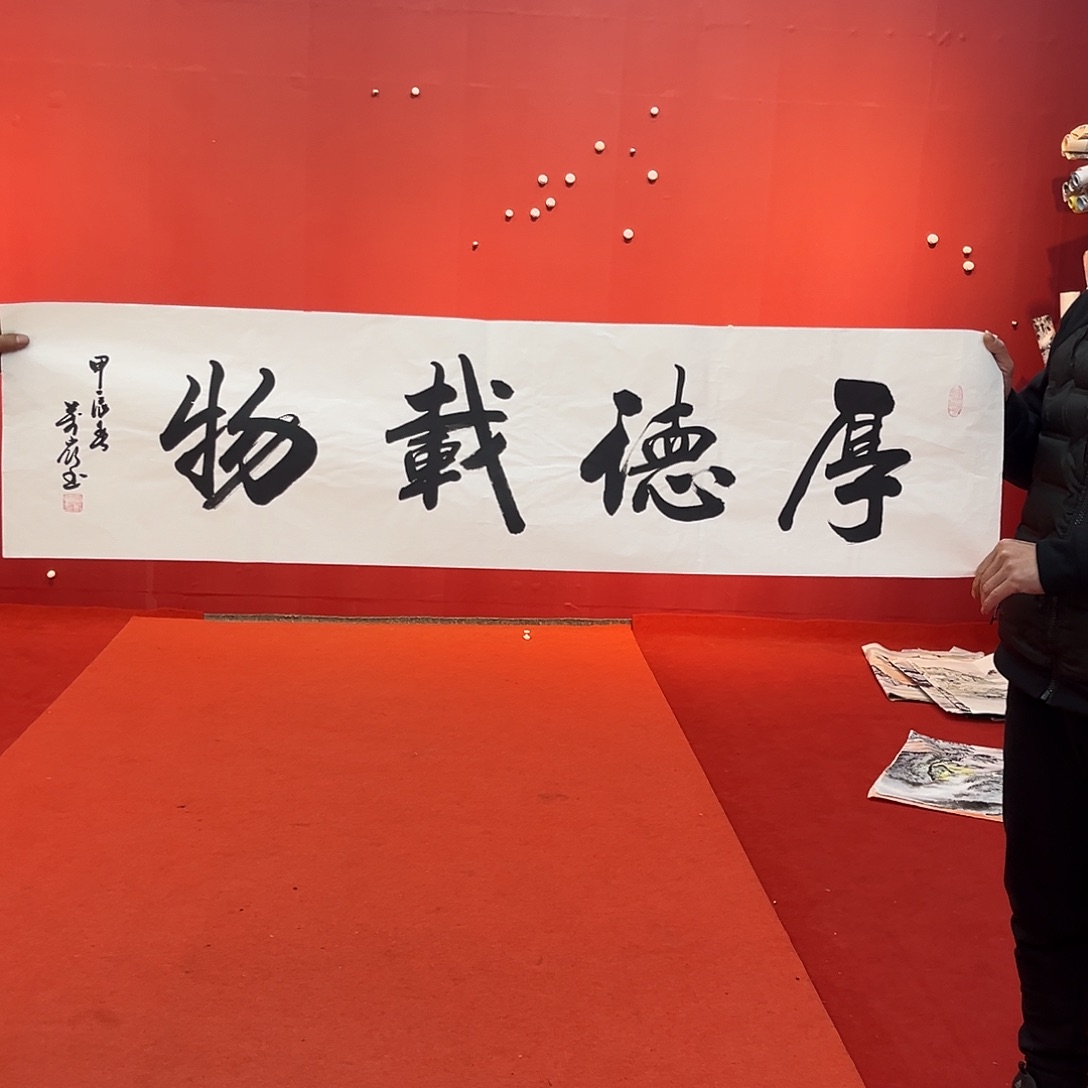 厚德載物
甲辰春